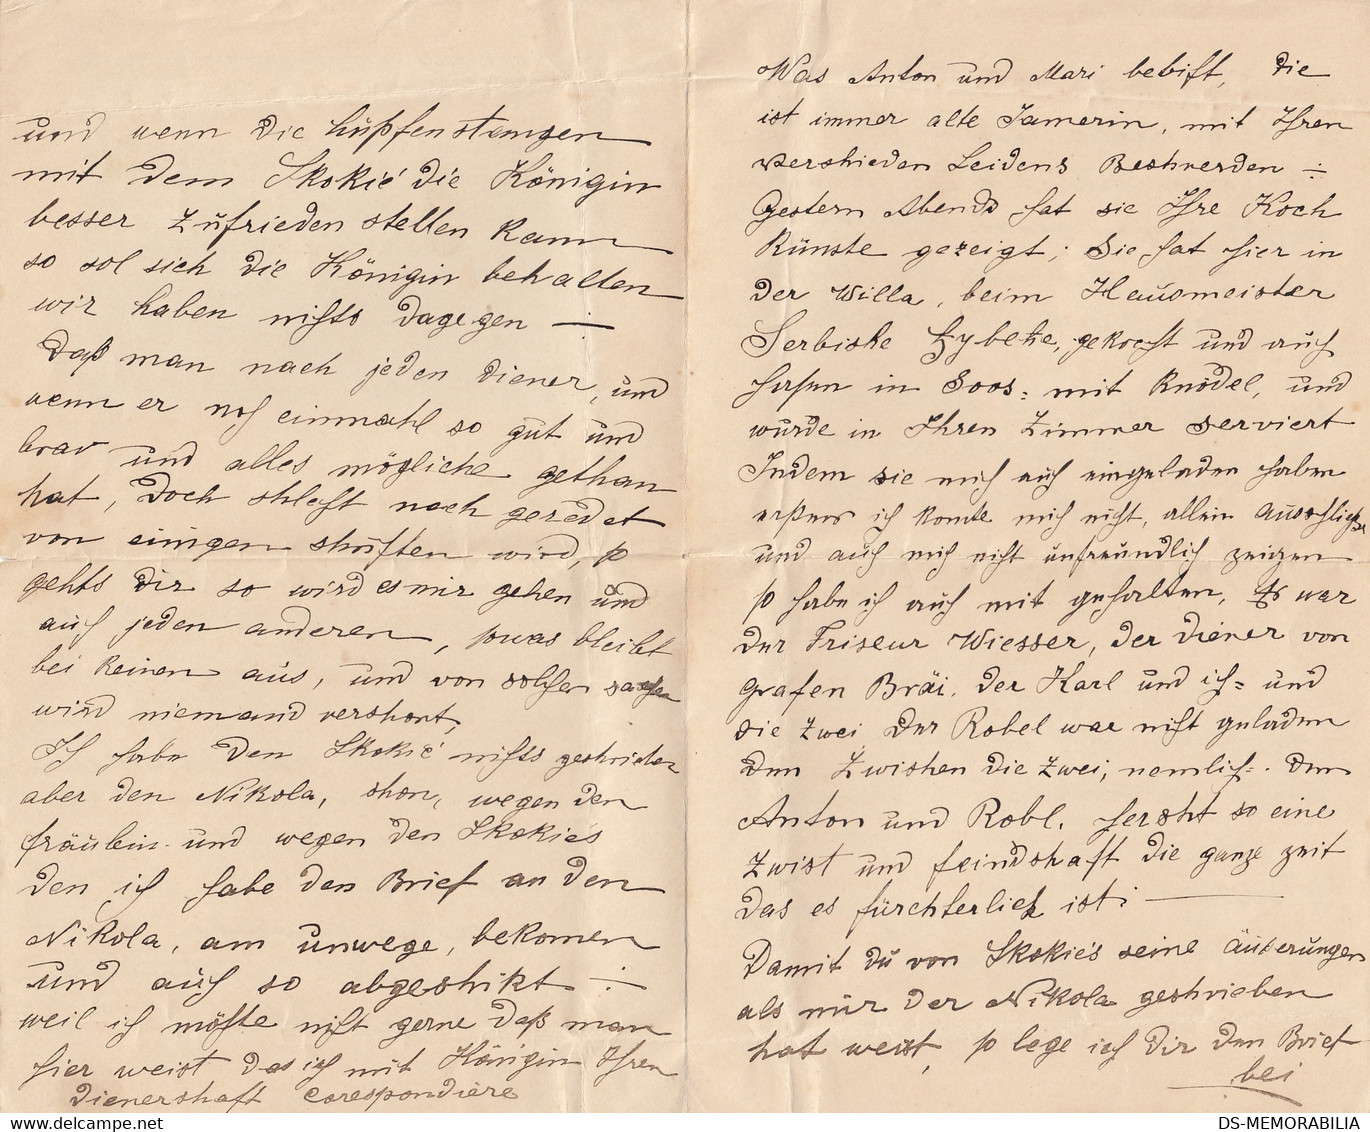 und wenn die hüpfenstangen
mit dem Skokić die Königin
besser Zufrieden stellen kann
so sol sich die Königin behalten
wir haben nichts dagegen —
Daß man nach jeden diener, und
wenn er noch einmahl so gut und
brav und alles mögliche gethan
hat, doch shleft nach geredet
von einigen shuften wird, so
gehts dir so wird es mir gehen und
auch jeden anderen, sowas bleibt
bei keinen aus, und von solchen sachen
wird niemand vershont,
Ich habe den Skokić nichts geshrieben
aber den Nikola, shon, wegen den
fräulein und wegen den Skokićs
den ich habe den Brief an den
Nikola, am unwege, bekomen
und auch so abgeshikt ÷
weil ich möchte nicht gerne daß man
hier weist das ich mit Königin Ihren
dienershaft Corespondiere
Was Anton und Mari betrift, die
ist immer alte Jamerin, mit Ihren
vershieden Leidens Beshwerden ÷
Gestern Abends hat sie Ihre Koch
Künste gezeigt; Sie hat hier in
der Willa, beim Hausmeister
Serbishe gekocht und auch
hasen in Soos: mit Knödel, und
wurde in Ihren Zimmer serviert
Indem sie mich auch eingeladen haben
ich konte mich nicht, allein ausshließen
und auch mich nicht unfreundlich zeigen
so habe ich auch mit gehalten, Es war
der Friseur Wiesser, der diener von
grafen Bräi, der Karl und ich= und
die zwei der Robel war nicht geladen
den Zwishen die zwei, nemlich: den
Anton und Robl, hersht so eine
zwist und feindshaft die ganze zeit
das es fürchterlich ist: —
Damit du von Skokićs seine äuserungen
als mir der Nikola geshrieben
hat weist, so lege ich dir den Brief
bei
DS-MEMORABILIA